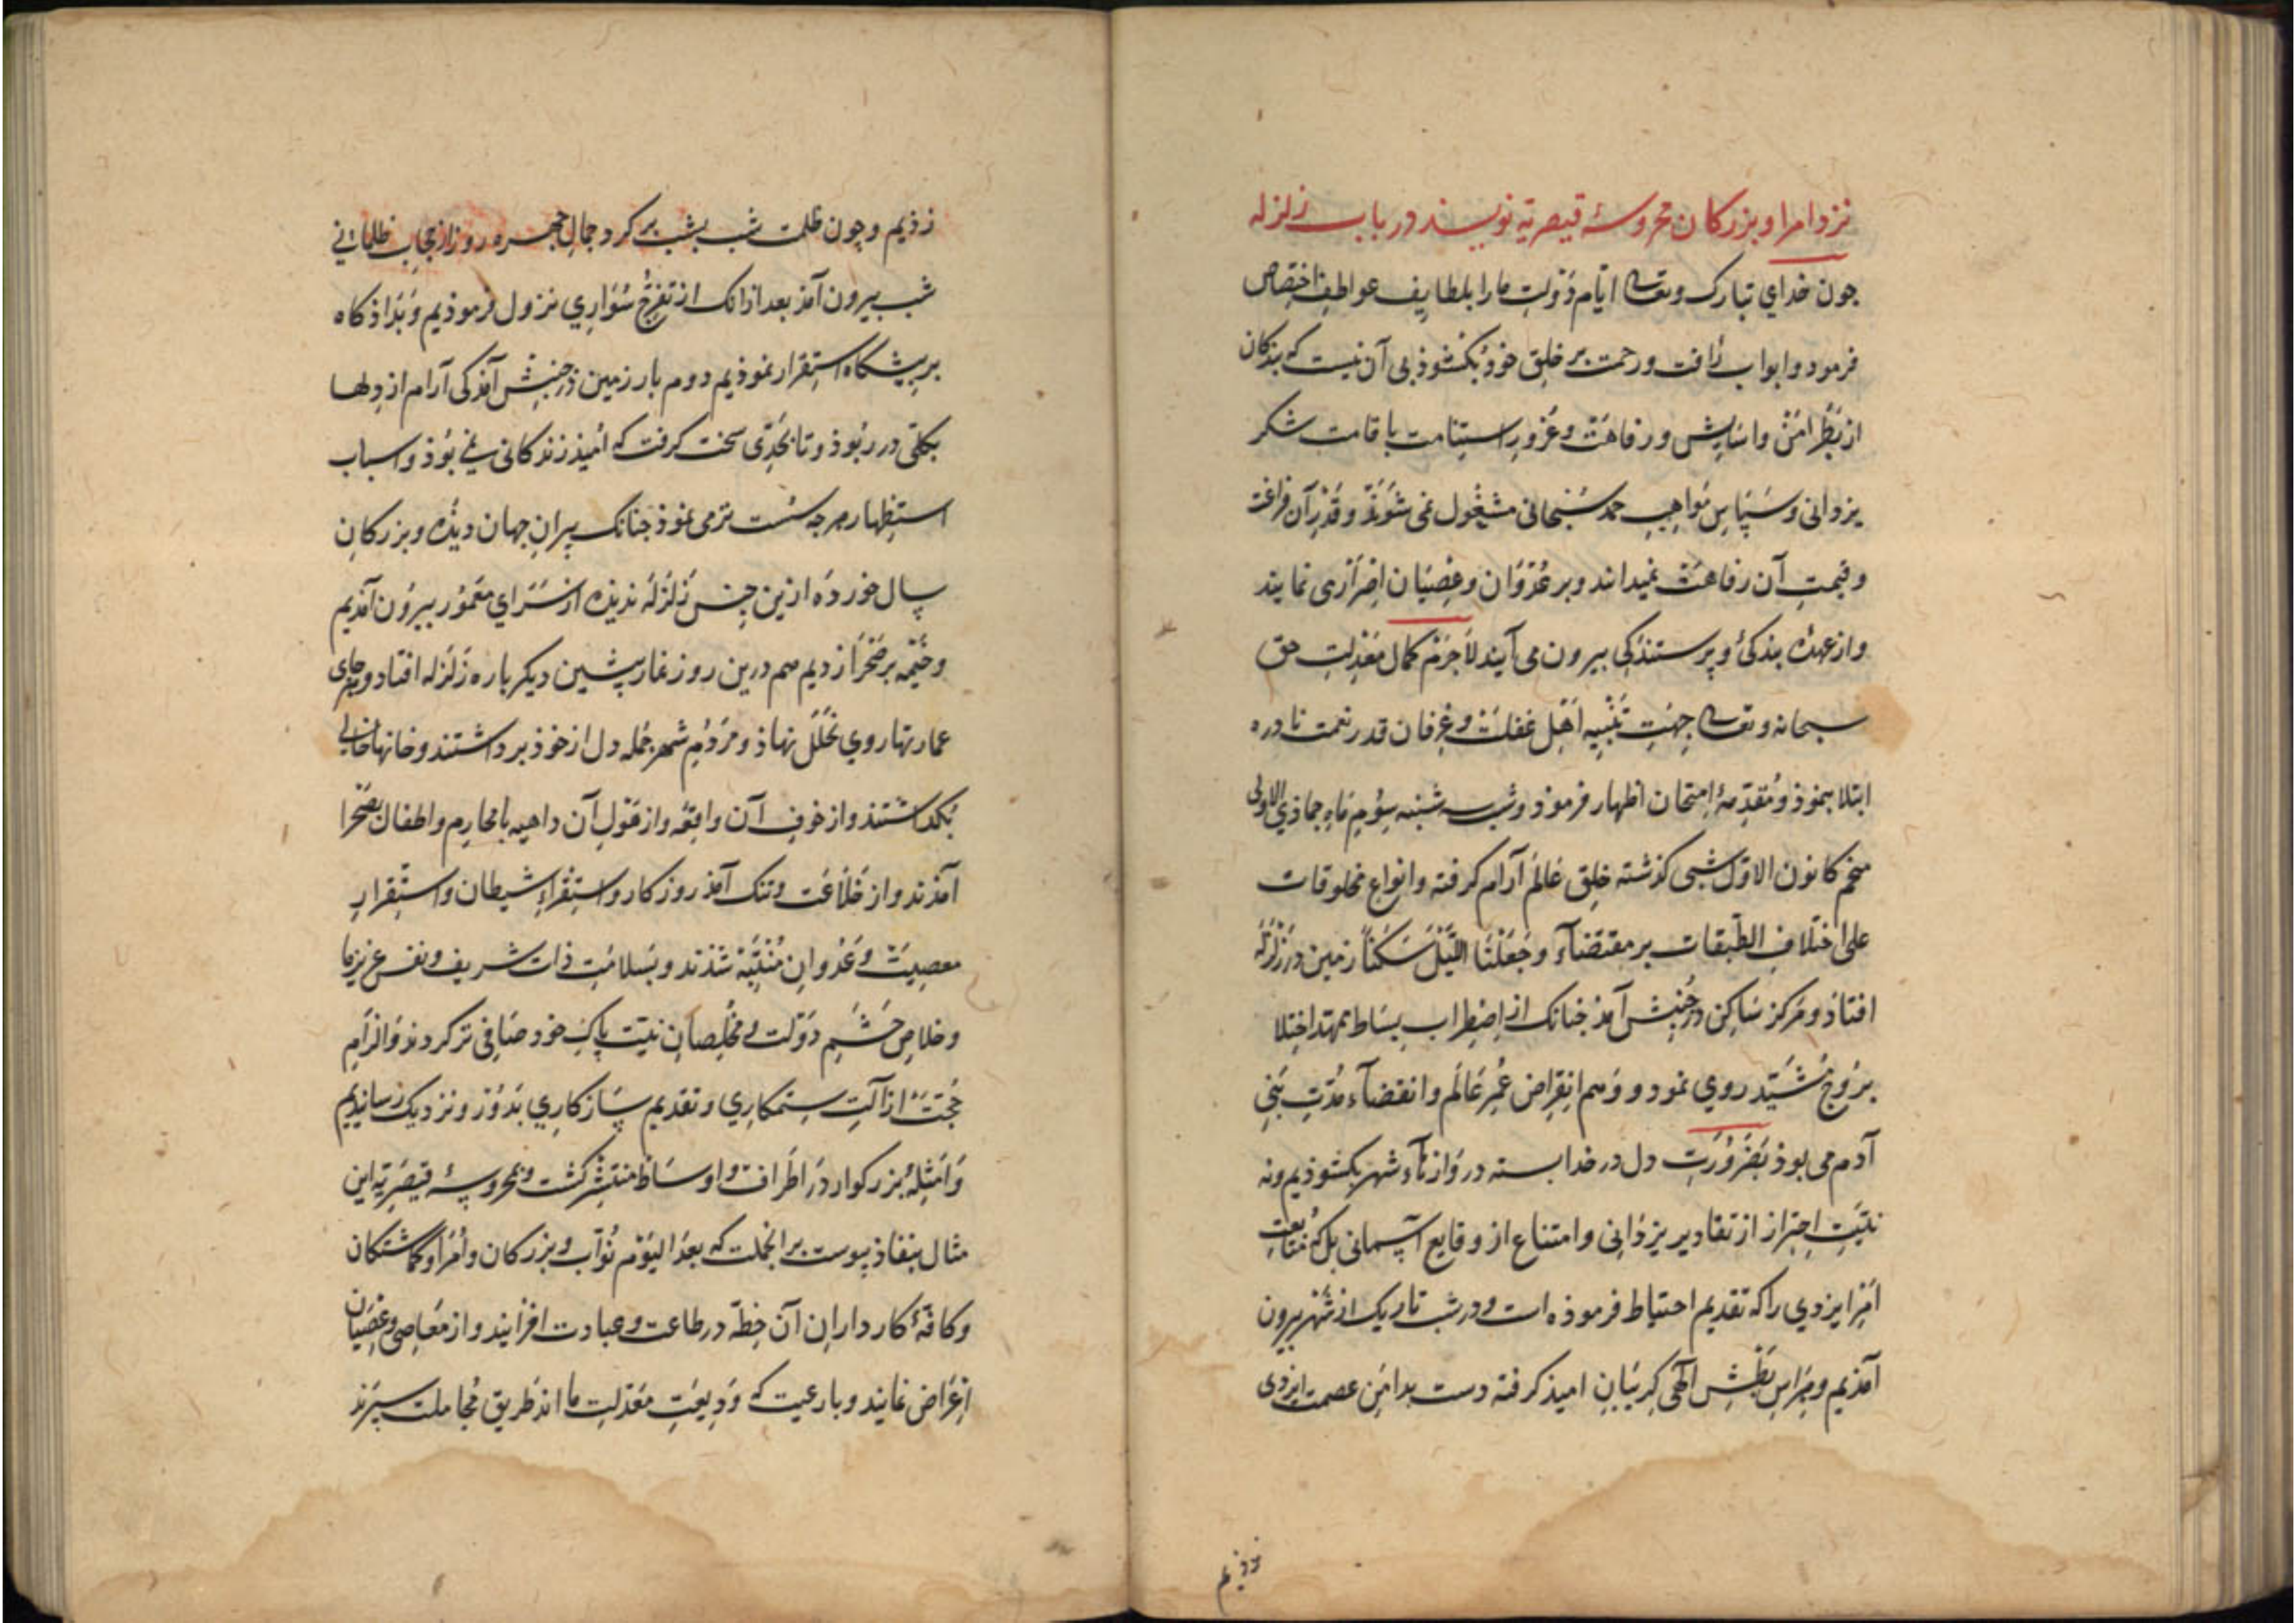 نزد امرا و بزرکان محروسهٔ قیصریه نویسند در باب زلزله
چون خدای تبارک و تعالی ایّام دَولتِ ما را بلطایف عواطف اختصاص
فرمود و ابواب رأفت و رحمت بر خلق خوذ بکشوذ بی آن نیست که بندکان
از بَطَرِ امن و اسایش و رفاهت و غرور استنامت باقامت شکر
یزدانی و سپاس مَواهب حمد سُبحانی مشغول نمی شوند و قدر آن فراغت
و قیمتِ آن رفاهت نمیدانند و بر عُدوَان و عِصیَان اِصرَاری نمایند
و از عهدهٔ بندکی و پرستندکی بیرون می آیند لاجرم کمال معدلتِ حق
سبحانه و تعالی جهتِ تنبیه اهل غفلت و عرفان قدر نعمت نادره
ابتلا بنموذ و مُقدّمهٔ امتحان اظهار فرموذ و شب سه شنبه سِوُم ماه جماذی الاولی
پنجم کانون الاوّل شبی کذشته خلق عالم آرام کرفته و انواع مخلوقات
علی اختلاف الطبقات بر مقتضآء وَجَعَلْنَا اللَّیْلَ سَکَنًا زمین در زلزله
افتاذ و مَرکز سَاکِن در جُنبش آمذ چنانک از اضطراب بساط ممهّد اختلا
برُوج مُشیّد روی نمود و وَهم انقِراض عُمرِ عَالَم و انقضآء مُدّتِ بَنِی
آدم می بوذ بضرُورَت دل در خدا بسته دروازآء شهر بکشوذیم و نه
نیّتِ احتِراز از تقادیر یزدَانی و امتناع از وقایع آسمانی بل که مُتابعتِ
امرِ ایزدی را که تقدیم احتیاط فرموذه است و در شب تاریک از شهر بیرون
آمذیم و بهراسِ بَطشِ الٰهی کریبانِ امیذ کرفته دست بدامنِ عصمت ایزدی
زذیم
زذیم و چون ظلمت شب پشت بر کرد و جمال چهره روز از حجاب ظلمانی
شب بیرون آمذ بعد از انک از تفرّج سُوَاری نزول فرموذیم و بَدَاذکاه
بر پیشکاه استقرار نموذیم دوم بار زمین در جنبش آمذ کی آرام از دلها
بکلّی در ربُوذ و تا بحَدّی سخت کرفت که امیذ زندکانی نمی بوذ و اسباب
استظهار هرچه سُست تر می نموذ چنانک پیرانِ جهان دیده و بزرکانِ
سال خورده ازین جنس زَلزَله ندیذه از سَرَای معمُور بیرُون آمذیم
و خیمه بر صَحرَا زدیم هم درین روز نماز پیشین دیکر باره زَلزَله افتاد و
عمارتها روی بخَلَل نهاذ و مَردُم شهر جُمله دل از خوذ برداشتند و خانها خالی
بکذاشتند و از خوف آن واقعه و از هَولِ آن داهیه با محارم و اطفال بصَحرا
آمذند و از خلاعَت و تنک آمذ روزکار و استقراء شیطان و استقرارِ
معصیت و عُدوان مُتنبّه شدند و بسَلامت ذات شریف و نفس عزیز ما
و خلاص حَشَم دَولت و مُخلِصان نیّتِ پاک خود صَافی تر کردند و الزام
حُجّت از آلتِ ستمکاری و تقدیم سازکاری بدُور و نزدیک رسانیدیم
وَ امثلهٔ بزرکوار در اطراف و اوساط منتشر کشت و بمحروسهٔ قیصَریّه این
مثال بنفاذ پیوست بر انجملت که بعد الیَوم نُوّاب و بزرکان و اُمَرا و کماشتکان
و کافّهٔ کارداران آن خطّه در طاعت و عبادت افزایند و از معَاصی و عِصیان
اِعراض نمایند و با رعیت که وَدیعتِ معدلتِ ما اند طریق مُجاملت سپرند